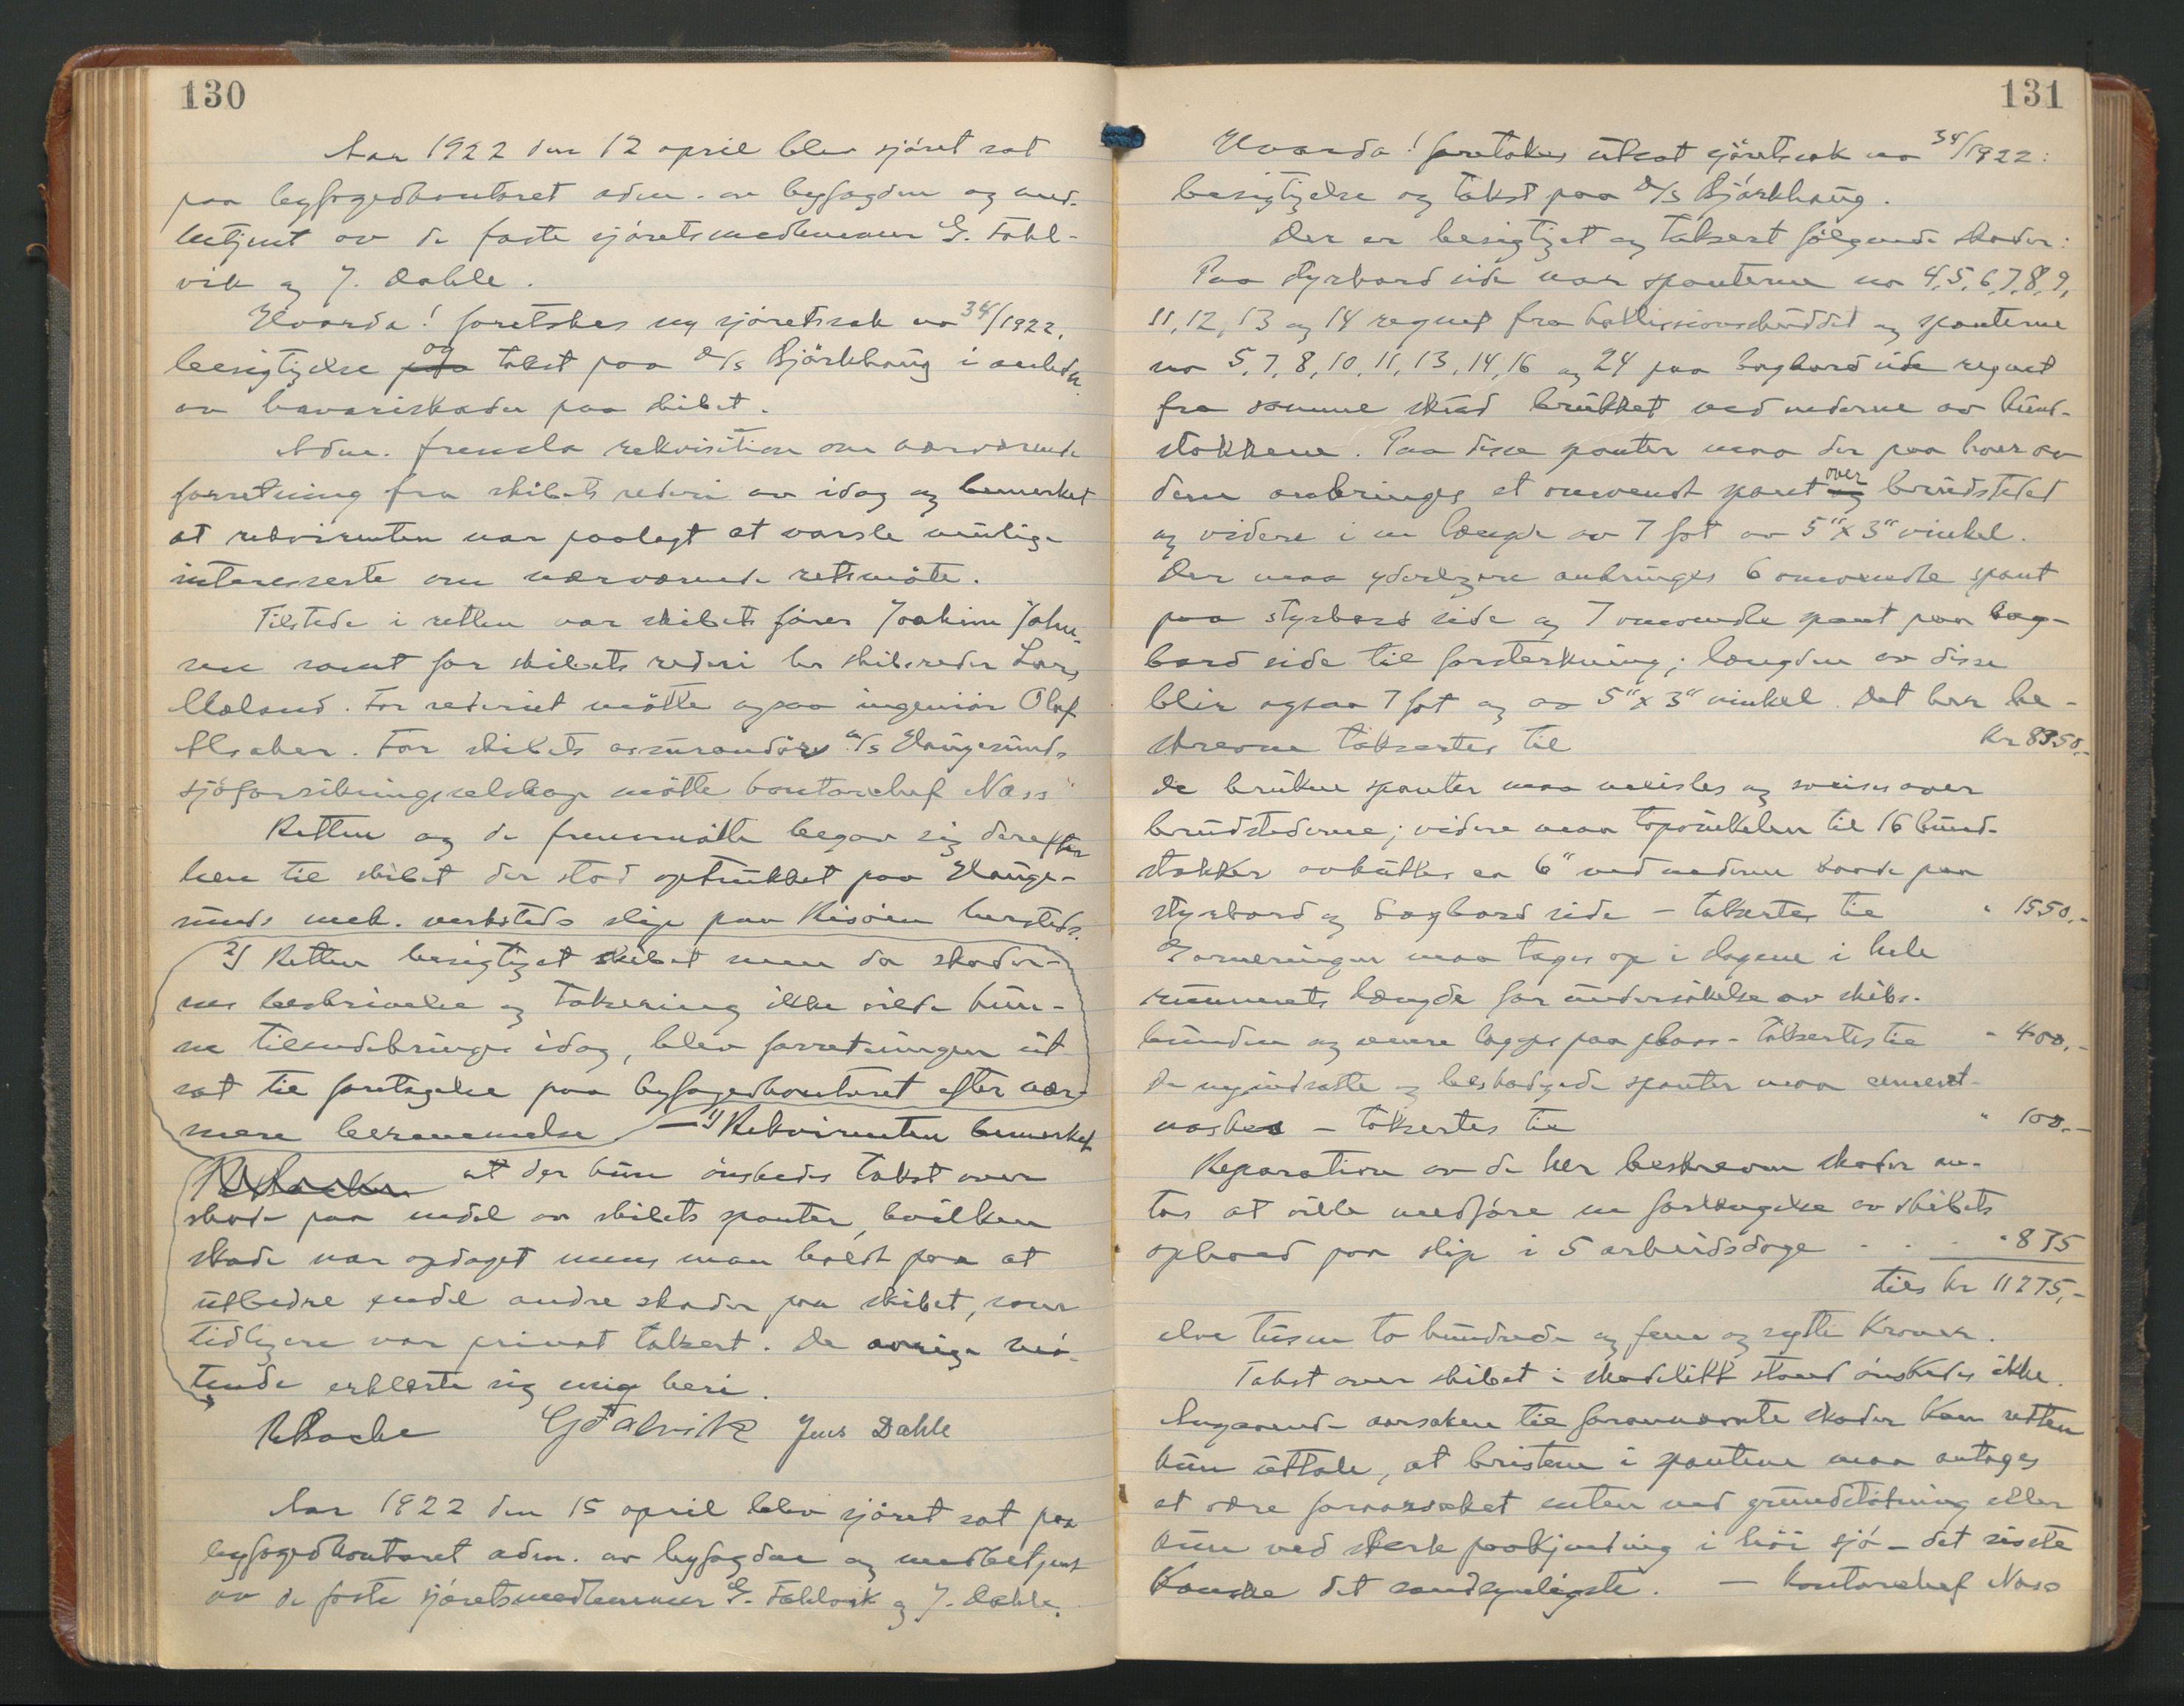 130
Aar 1922 den 12 april blev sjöret sat
paa byfogedkontoret adm. av byfogden og med-
betjent av de faste sjöretsmedlemmer G. Fahl-
vik og J. Dahle.
Hvorda! foretokes ny sjöretssak no 34/1922,
besigtigelse og takst paa D/S Björkhaug i anledn.
av havariskader paa skibet.
Adm. fremla rekvisition om nærværende
forretning fra skibets rederi av idag og bemerket
at rekvirenten var paalagt at varsle mulige
interesserte om nærværende retsmöte.
Tilstede i retten var skibets förer Joakim John-
sen samt for skibets rederi hr skibsreder Lars
Meland. For rederiet mötte ogsaa ingeniör Olaf
. For skibets assurandör A/S Haugesunds
sjöforsikringsselskap mötte kontorchef Næss
Retten og de fremmötte begav sig derefter
hen til skibet der stod optrukket paa Hauge-
sunds mek. verksteds slip paa Risöen hersteds.
2) Retten besigtiget skibet men da skader-
nes beskrivelse og taksering ikke vilde kun-
ne tilendebringes idag, blev forretningen ut-
sat til foretagelse paa byfogedkontoret efter nær-
mere berammelse — 1) Rekvirenten bemerket
at der kun önskedes takst over
skade paa endel av skibets spanter, hvilken
skade var opdaget mens man holdt paa at
utbedre endel andre skader paa skibet, som
tidligere var privat taksert. De övrige mö-
tende erklærte sig enig heri.
R Bache G Fahlvik Jens Dahle
Aar 1922 den 15 april blev sjöret sat paa
byfogedkontoret adm. av byfogden og medbetjent
av de faste sjöretsmedlemmer G. Fahlvik og J. Dahle.
131
Hvorda! foretokes utsat sjöretssak no 34/1922:
besigtigelse og takst paa D/S Björkhaug.
Der er besigtiget og taksert fölgende skader:
Paa styrbord side var spanterne no 4, 5, 6, 7, 8, 9,
11, 12, 13 og 14 regnet fra kollissionskuddet og spanterne
no 5, 7, 8, 10, 11, 13, 14, 16 og 24 paa bagbord side regnet
fra samme skud brukket ved enderne av bund-
stokkene. Paa disse spanter maa der paa hver av
dem anbringes et omvendt spant over brudstedet
og videre i en længde av 7 fot av 5" x 3" vinkel.
Der maa yderligere anbringes 6 omvendte spant
paa styrbord side og 7 omvendte spant paa bag-
bord side til forsterkning; længden av disse
blir ogsaa 7 fot og av 5" x 3" vinkel. Det her be-
skrevne taksertes til kr 8350,-
De brukne spanter maa meisles og sveises over
brudstederne; videre maa topvinkelen til 16 bund-
stokker avkuttes ca 6" ved enderne baade paa
styrbord og bagbord side - taksertes til " 1550,-
Garneringen maa tages op i slagene i hele
rummets længde for undersökelse av skibs-
bunden og senere lægges paa plass - taksertes til " 400,-
De nyindsatte og beskadigede spanter maa cement-
vaskes - taksertes til " 100,-
Reparation av de her beskrevne skader an-
tas at ville medföre en forlængelse av skibets
ophold paa slip i 5 arbeidsdage . . . " 835
tils kr 11275,-
elve tusen to hundrede og fem og sytti Kroner.
Takst over skibet i skadelidt stand önskedes ikke.
Angaaende aarsaken til forannævnte skader kan retten
kun uttale, at bristene i spantene maa antages
at være foraarsaket enten ved grundstötning eller
kun ved sterk paakjending i höi sjö - det siste
kanske det sandsynligste. — Kontorchef Næss